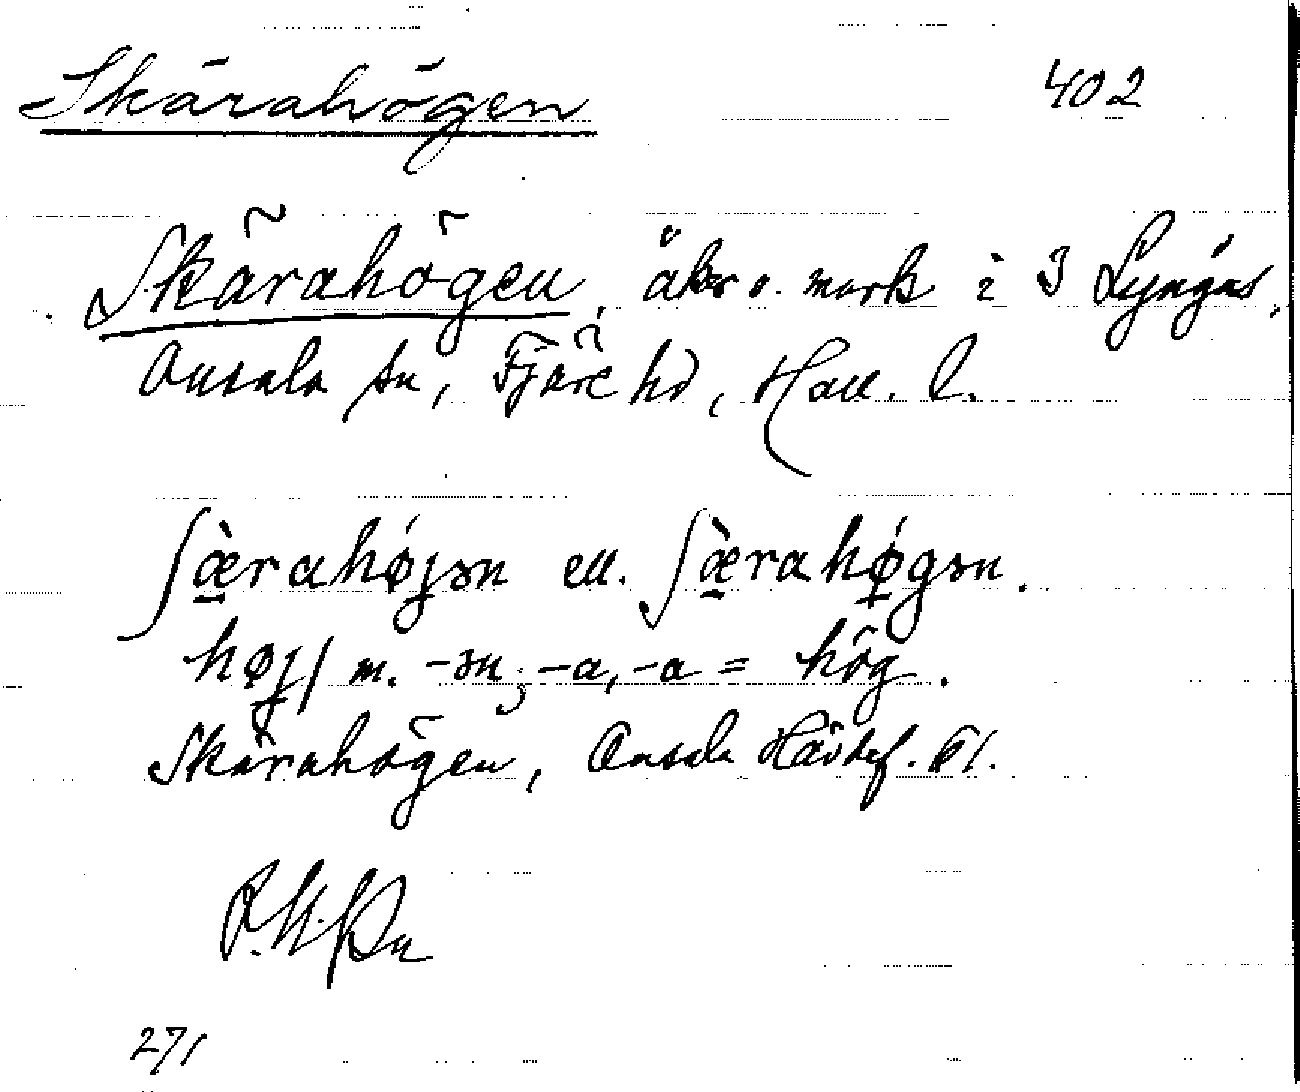 Skärahögen 402
Skärahögen, åker o. mark i 3 Lyngås,
Onsala sn, Fjäre hd, Hall. l.
ʃæ̀rahǿjən ell. ʃæ̀rahǿgən.
høj/ m. -ən; -a, -a = hög.
Skärahögen, Onsala Hävdef. 61.
271